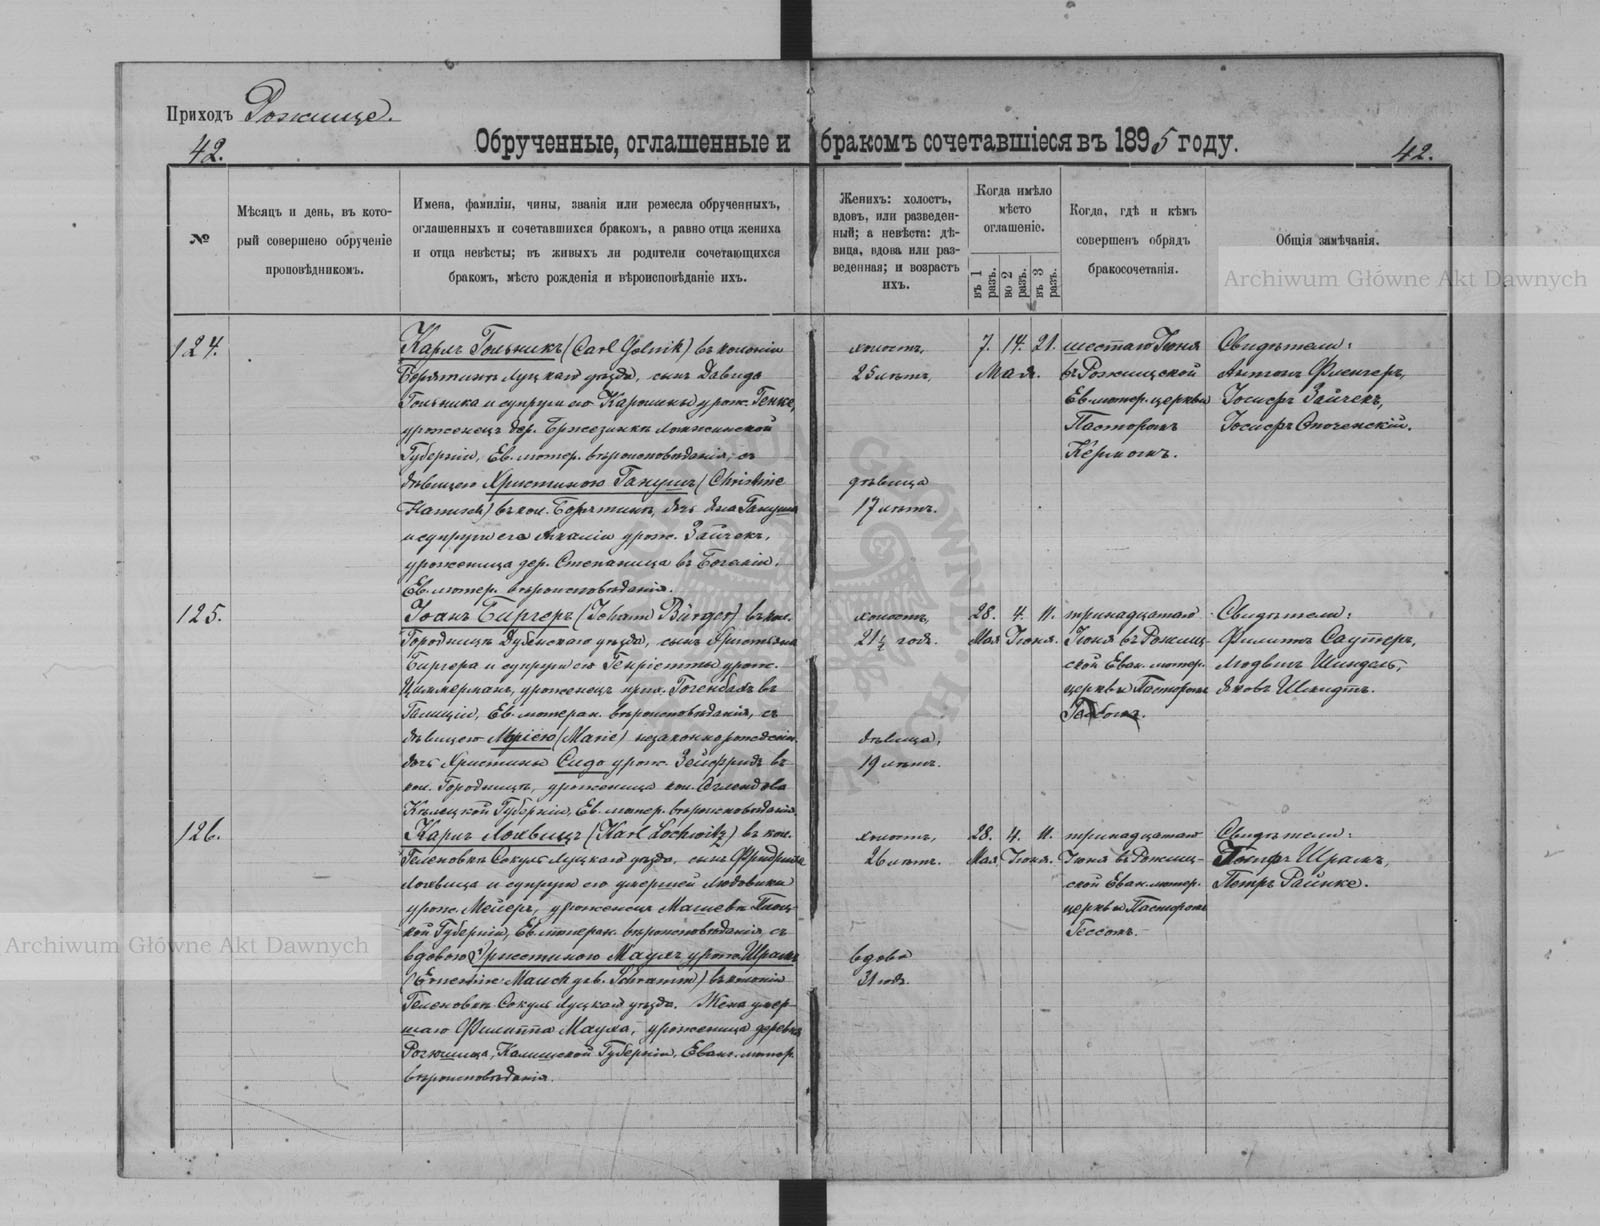 Приходъ Рожище.
42.
Обрученные, оглашенные и бракомъ сочетавшіеся въ 1895 году.
42.
№
Мѣсяцъ и день, въ кото-
рый совершено обрученіе
проповѣдникомъ.
Имена, фамиліи, чины, званія или ремесла обрученныхъ,
оглашенныхъ и сочетавшихся бракомъ, а равно отца жениха
и отца невѣсты; въ живыхъ ли родители сочетающихся
бракомъ, мѣсто рожденія и вѣроисповѣданіе ихъ.
Женихъ: холостъ,
вдовъ, или разведен-
ный; а невѣста: дѣ-
вица, вдова или раз-
веденная; и возрастъ
ихъ.
Когда имѣло
мѣсто
оглашеніе.
въ 1 разъ.
во 2 разъ.
въ 3 разъ.
Когда, гдѣ и кѣмъ
совершенъ обрядъ
бракосочетанія.
Общія замѣчанія.
124.
Карлъ Гольникъ (Carl Golnik) въ колоніи
Борятинъ Луцкаго уѣзда, сынъ Давида
Гольника и супруги его Каролины урож. Генке,
уроженецъ дер. Бржезинка Ломжинской
Губерніи, Ев. лютер. вѣроисповѣданія, съ
дѣвицею Христиною Ганушъ (Christine
Hanusch) въ кол. Борятинъ, дочь Гануша
и супруги его Амаліи урож. Зайчекъ,
уроженица дер. Степаница въ Богеміи,
Ев. лютер. вѣроисповѣданія.
холостъ,
25 лѣтъ,
дѣвица
17 лѣтъ.
7. 14. 21.
Мая.
шестаго Іюня
въ Рожищской
Ев. лютер. церкви
Пасторомъ
Кермомъ.
Свидѣтели:
Антонъ Фленгеръ,
Іосифъ Зайчекъ,
Іосифъ Опоченскій.
125.
Іоанъ Биргеръ (Johann Bürger) въ кол.
Городницѣ Дубенскаго уѣзда, сынъ Христьяна
Биргера и супруги его Генріетты урож.
Циммерманъ, уроженецъ въ
Галиціи, Ев. лютеран. вѣроисповѣданія, съ
дѣвицею Маріею (Marie) незаконнорожденн.
дочь Христины Сидо урож. Зейфридъ въ
кол. Городницѣ, уроженица кол.
Кѣлецкой Губерніи, Ев. лютер. вѣроисповѣданія.
холостъ,
21½ годъ.
дѣвица,
19 лѣтъ.
28. 4. 11.
Мая Іюня.
тринадцатаго
Іюня въ Рожищ-
ской Еван. лютер.
церкви Пасторомъ
Свидѣтели:
Филиппъ Саутеръ,
Людвигъ Шиндель,
Яковъ Шмидтъ.
126.
Карлъ Лохвицъ (Karl Lochwitz) въ кол.
Геленовкѣ Сокулъ Луцкаго уѣзда, сынъ Фридриха
Лохвица и супруги его умершей Людовики
урож. Мейеръ, уроженецъ Плоц-
кой Губерніи, Ев. лютеран. вѣроисповѣданія, съ
вдовою Эрнестиною Маухъ урож. Шрамъ
(Ernestine Mauch geb. Schramm) въ колоніи
Геленовкѣ Сокулъ Луцкаго уѣзда. Жена умер-
шаго Филиппа Мауха, уроженица деревни
Калишской Губерніи, Еван. лютер.
вѣроисповѣданія.
холостъ,
26 лѣтъ.
вдова
31 годъ.
28. 4. 11.
Мая Іюня.
тринадцатаго
Іюня въ Рожищ-
ской Еван. лютер.
церкви Пасторомъ
Гессомъ.
Свидѣтели:
Іосифъ Шрамъ,
Петръ Райнке.
Archiwum Główne Akt Dawnych
Archiwum Główne Akt Dawnych